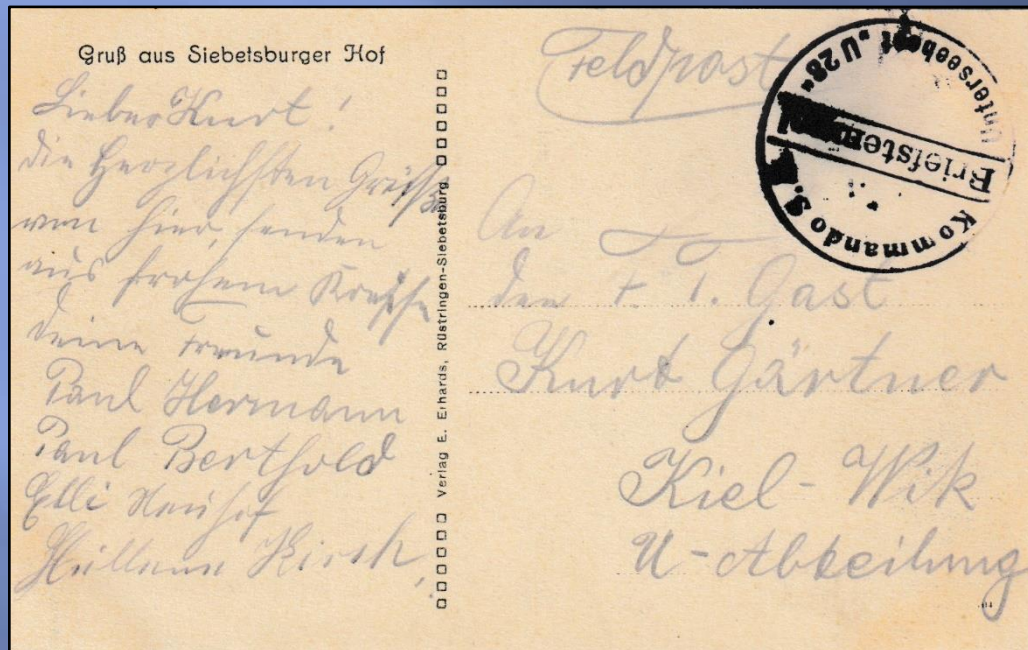 Gruß aus Siebetsburger Hof
Lieber Kurt!
die herzlichsten Grüße
von hier, senden
aus frohem Kreise
deine Freunde
Paul Hermann
Paul Berthold
Elli Neuhof
Kirsch,
Verlag E. Erhards, Rüstringen-Siebetsburg
Feldpost
Kommando S. M. Unterseeboot „U 28“
Briefstempel
An
den F. T. Gast
Kurt Gärtner
Kiel-Wik
U-Abteilung